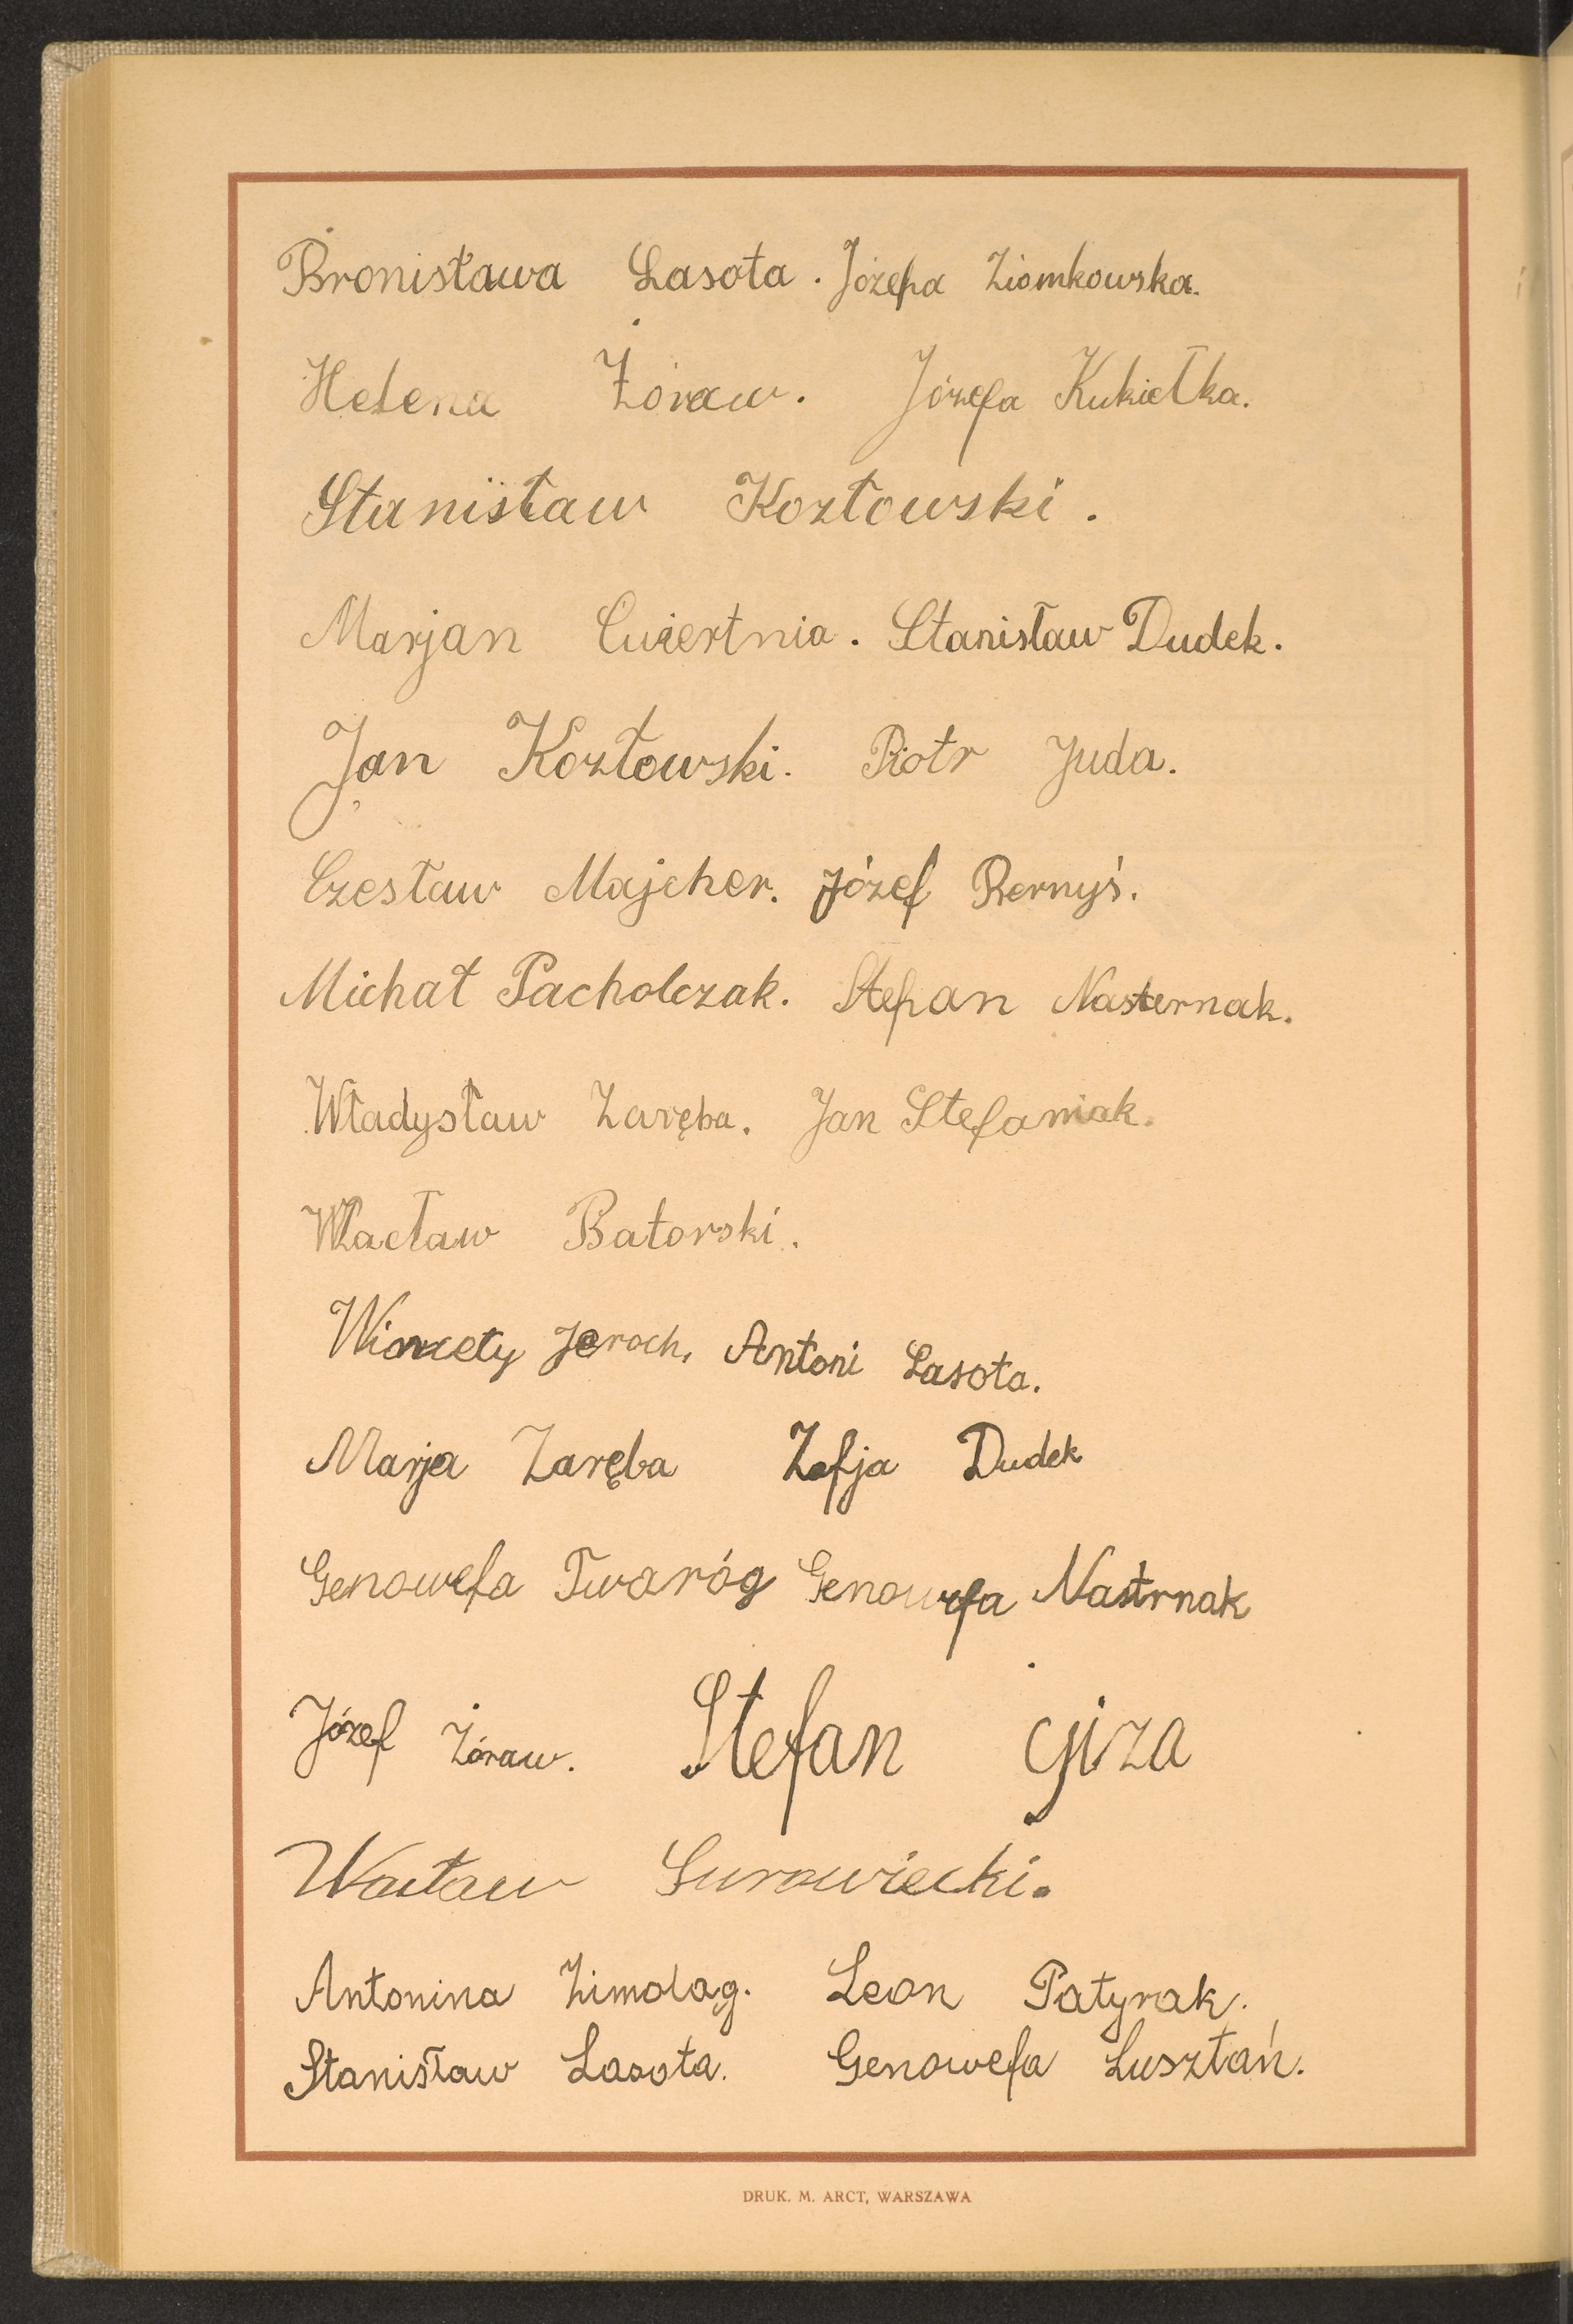 Bronisława Lasota. Józefa Ziomkowska.
Helena Żóraw. Józefa Kukiełka.
Stanisław Kozłowski.
Marjan Cwiertnia. Stanisław Dudek.
Jan Kozłowski. Piotr Juda.
Czesław Majcher. Józef Rernyś.
Michał Pacholczak. Stefan Nasternak.
Władysław Zaręba. Jan Stefaniak.
Wacław Batorski.
Wincety Jeroch, Antoni Lasota.
Marja Zaręba Zofja Dudek
Genowefa Twaróg Genowefa Nastrnak
Józef Żóraw. Stefan Giza
Wacław Surowiecki.
Antonina Zimoląg. Leon Patyrak.
Stanisław Lasota. Genowefa Lusztań.
DRUK. M. ARCT, WARSZAWA